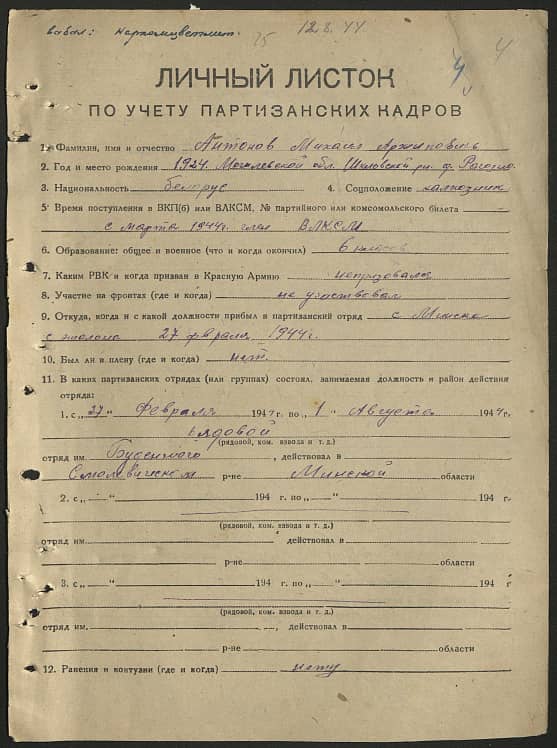 12.8.44
4
ЛИЧНЫЙ ЛИСТОК
ПО УЧЕТУ ПАРТИЗАНСКИХ КАДРОВ
1. Фамилия, имя и отчество Антонов Михаил Архипович
2. Год и место рождения 1924. Могилевской обл. Шкловский рн. д.
3. Национальность белорус 4. Соцположение колхозник
5. Время поступления в ВКП(б) или ВЛКСМ, № партийного или комсомольского билета
с марта 1944г. член ВЛКСМ
6. Образование: общее и военное (что и когда окончил) 6 класов
7. Каким РВК и когда призван в Красную Армию непризовался
8. Участие на фронтах (где и когда) не участвовал
9. Откуда, когда и с какой должности прибыл в партизанский отряд с Минска
с 27 февраля 1944г.
10. Был ли в плену (где и когда) нет.
11. В каких партизанских отрядах (или группах) состоял, занимаемая должность и район действия
отряда:
1. с „27“ Февраля 1944 г. по „1“ Августа 1944 г.
рядовой
(рядовой, ком. взвода и т. д.)
отряд им. Буденного, действовал в
Смолевическом р-не Минской области
2. с „ “ 194 г. по „ “ 194 г.
(рядовой, ком. взвода и т. д.)
отряд им. действовал в
р-не области
3. с „ “ 194 г. по „ “ 194 г
(рядовой, ком. взвода и т. д.)
отряд им. , действовал в
р-не области
12. Ранения и контузии (где и когда) нету